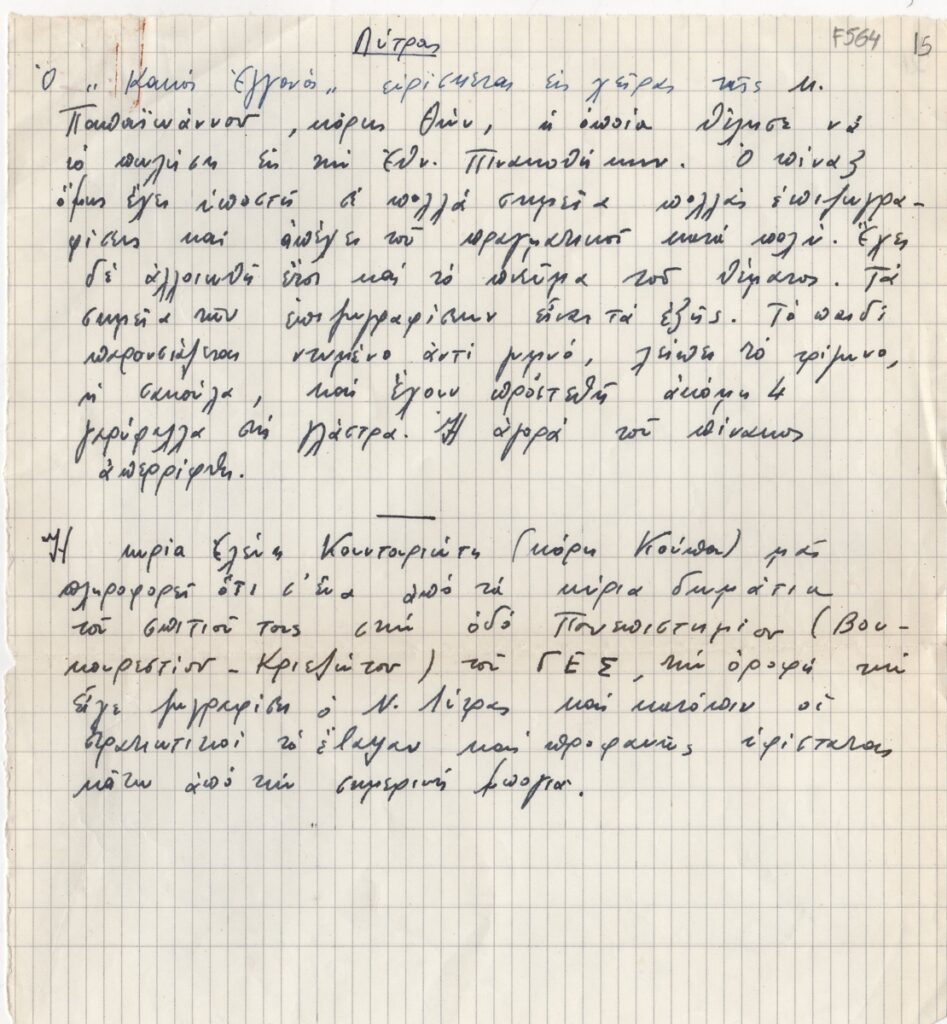 Λύτρας
F564 15
Ὁ „Κακός Ἐγγονός„ εὑρίσκεται εἰς χεῖρας τῆς κ.
Παπαϊωάννου, κόρης Θών, ἡ ὁποία θέλησε νά
τό πωλήση εἰς τήν Ἐθν. Πινακοθήκην. Ὁ πίναξ
ὅμως ἔχει ὑποστῆ σέ πολλά σημεῖα πολλάς ἐπιζωγρα-
φίσεις καί ἀπέχει τοῦ πραγματικοῦ κατά πολύ. Ἔχει
δέ ἀλλοιωθῆ ἔτσι καί τό πνεῦμα τοῦ θέματος. Τά
σημεῖα τῶν ἐπιζωγραφίσεων εἶναι τά ἑξῆς. Τό παιδί
παρουσιάζεται ντυμένο ἀντί γυμνό, λείπει τό τρίγωνο,
ἡ σακούλα, καί ἔχουν προστεθῆ ἀκόμη 4
γαρύφαλλα στή γλάστρα. Ἡ ἀγορά τοῦ πίνακος
ἀπερρίφθη.
Ἡ κυρία Ἑλένη Κουντουριώτη (κόρη Κούπα) μᾶς
πληροφορεῖ ὅτι σ' ἕνα ἀπό τά κύρια δωμάτια
τοῦ σπιτιοῦ τους στήν ὁδό Πανεπιστημίου (Βου-
κουρεστίου - Κριεζώτου) τοῦ ΓΕΣ, τήν ὀροφή τήν
εἶχε ζωγραφίσει ὁ Ν. Λύτρας καί κατόπιν οἱ
στρατιωτικοί τό ἔβαψαν καί προφανῶς ὑφίσταται
κάτω ἀπό τήν σημερινή μπογιά.